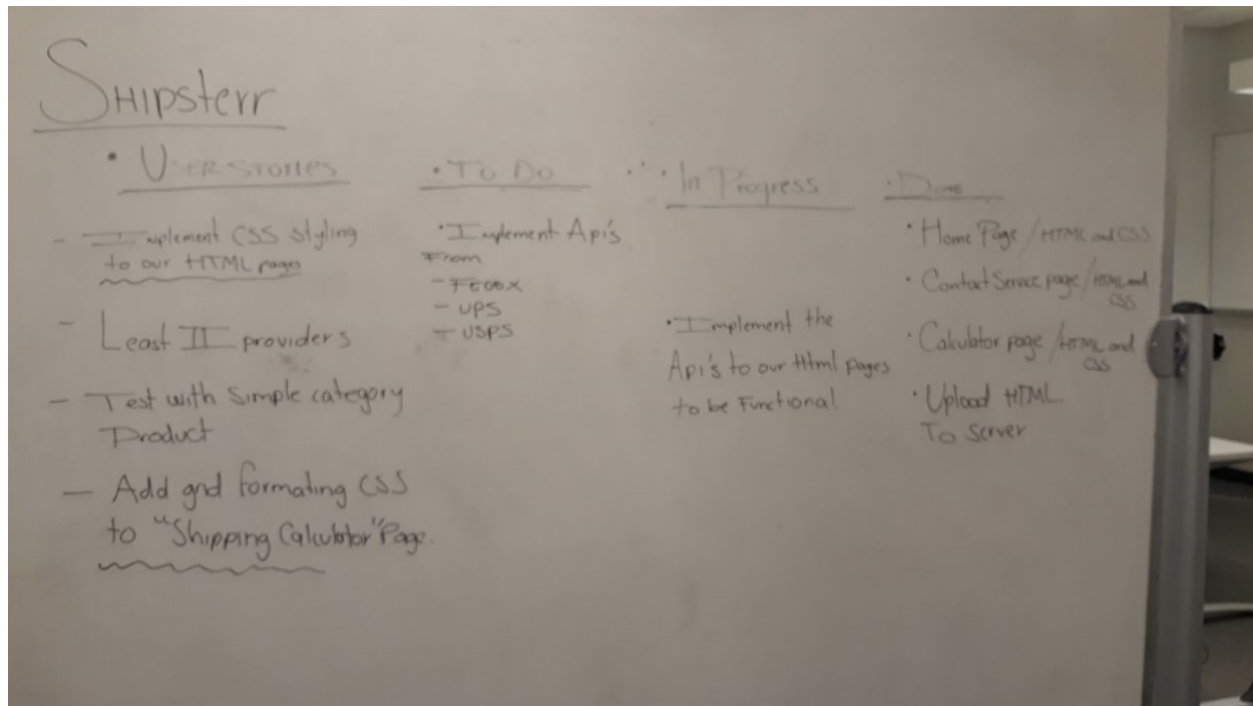 SHIPsterr
• USER STORIES
- Implement CSS Styling
to our HTML pages
- Least II providers
- Test with Simple category
Product
- Add grid formating CSS
to "Shipping Calculator" Page.
• To Do
• Implement Api's
From
- FEDEX
- UPS
- USPS
• In Progress
• Implement the
Api's to our Html pages
to be Functional
• Done
• Home Page / HTML and CSS
• Contact Service page / HTML and
CSS
• Calculator page / HTML and
CSS
• Upload HTML
To Server